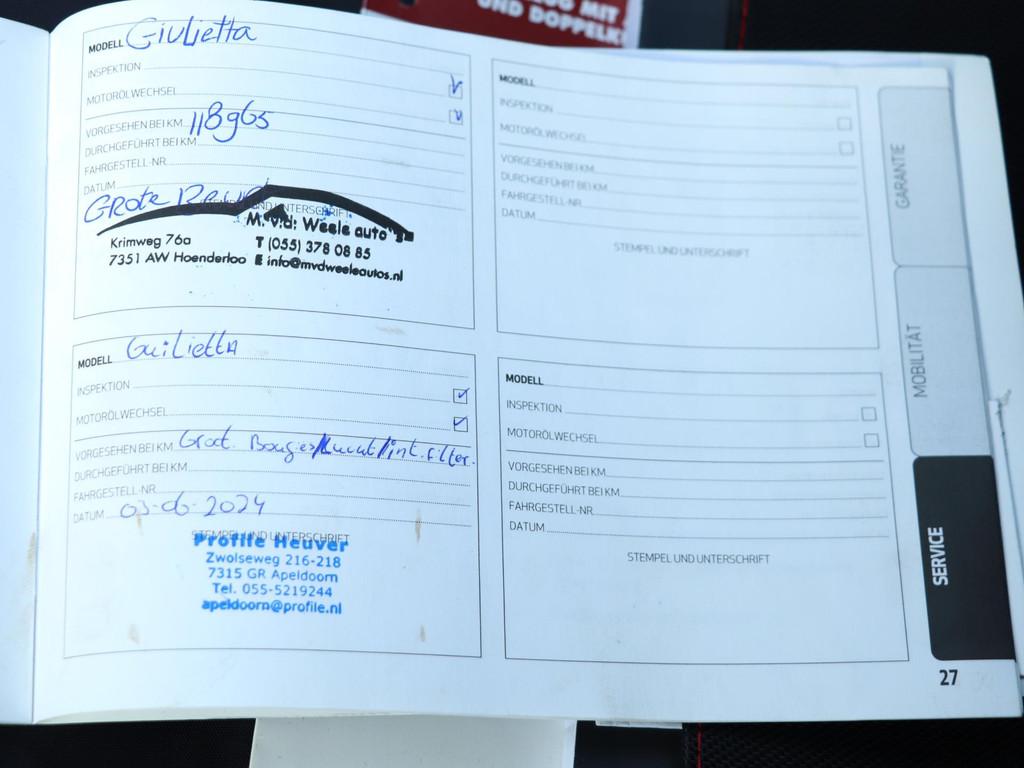 UND DOPPELK
MODELL Giulietta
INSPEKTION
MOTORÖLWECHSEL
VORGESEHEN BEI KM 118965
DURCHGEFÜHRT BEI KM
FAHRGESTELL-NR.
DATUM
Grote
M. v.d. Weele auto's
Krimweg 76a
T (055) 378 08 85
7351 AW Hoenderloo
E info@mvdweeleautos.nl
MODELL Guilietta
INSPEKTION
MOTORÖLWECHSEL
VORGESEHEN BEI KM Grot. Bougies/Lucht/int.filter.
DURCHGEFÜHRT BEI KM
FAHRGESTELL-NR.
DATUM 03-06-2024
STEMPEL UND UNTERSCHRIFT
Profile Heuver
Zwolseweg 216-218
7315 GR Apeldoorn
Tel. 055-5219244
apeldoorn@profile.nl
MODELL
INSPEKTION
MOTORÖLWECHSEL
VORGESEHEN BEI KM
DURCHGEFÜHRT BEI KM
FAHRGESTELL-NR.
DATUM
STEMPEL UND UNTERSCHRIFT
MODELL
INSPEKTION
MOTORÖLWECHSEL
VORGESEHEN BEI KM
DURCHGEFÜHRT BEI KM
FAHRGESTELL-NR.
DATUM
STEMPEL UND UNTERSCHRIFT
GARANTIE
MOBILITÄT
SERVICE
27